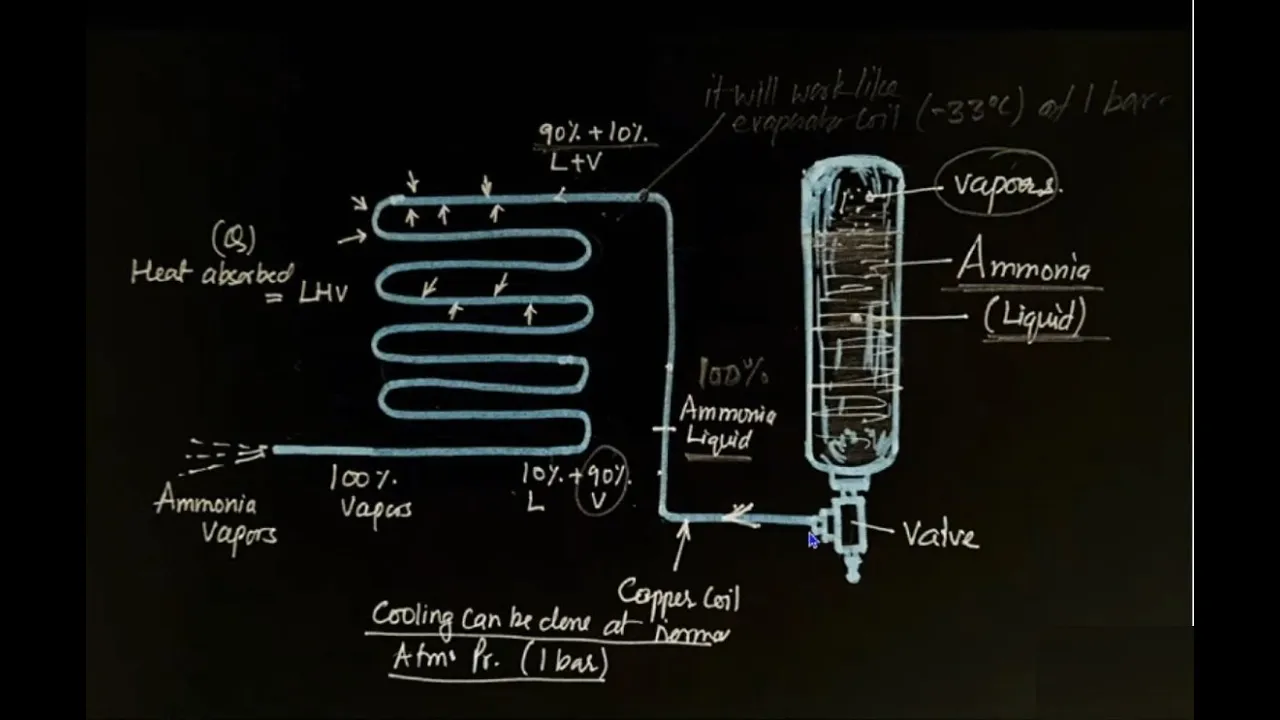 it will work like
evaporator coil (-33°C) at 1 bar.
90% + 10%
L+V
vapours.
(Q)
Heat absorbed
= LHV
Ammonia
(Liquid)
100%
Ammonia
Liquid
100%
Vapours
10% + 90%
L V
Ammonia
Vapors
Valve
Copper Coil
Cooling can be done at norma
Atm. Pr. (1 bar)